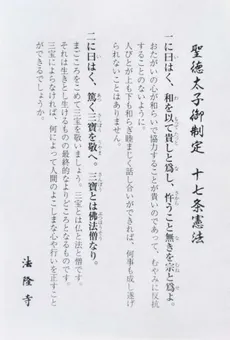 聖徳太子御制定 十七条憲法
一に曰はく、和を以て貴しと爲し、忤うこと無きを宗と爲よ。
おたがいの心が和らいで協力することが貴いのであって、むやみに反抗
することのないように。
人びとが上も下も和らぎ睦まじく話し合いができれば、何事も成し遂げ
られないことはありません。
二に曰はく、篤く三寶を敬へ。三寶とは佛法僧なり。
まごころをこめて三宝を敬いましょう。三宝とは仏と法と僧です。
それは生きとし生けるものの最終的なよりどころとなるものです。
三宝によらなければ、何によって人間のよこしまな心や行いを正すこと
ができるでしょうか。
法隆寺